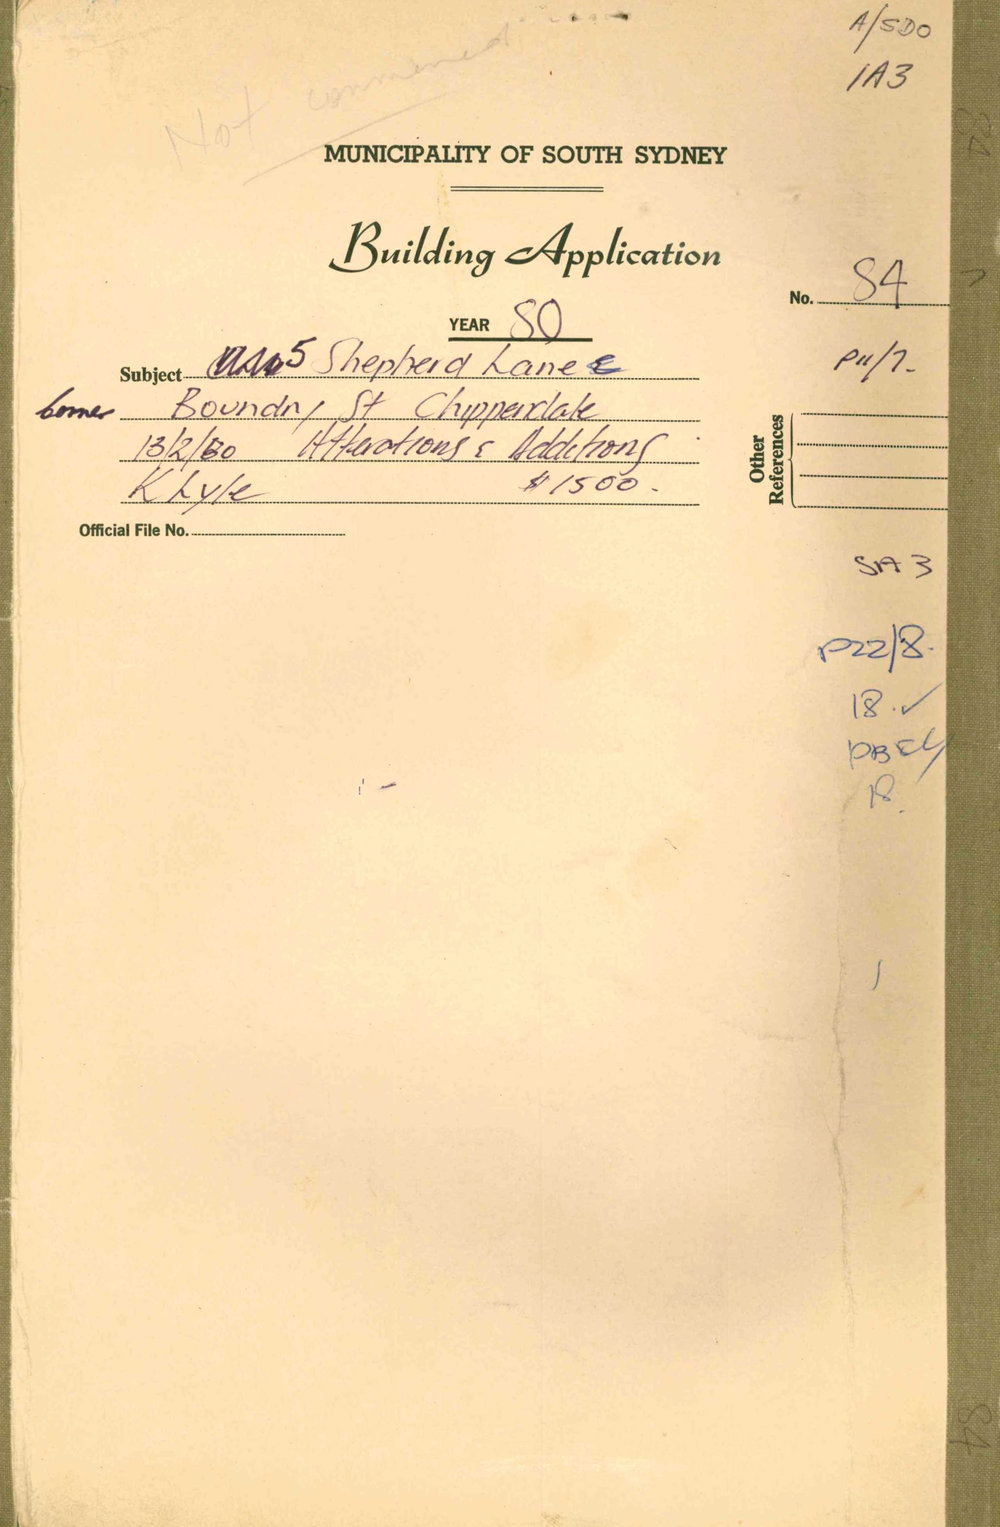 A/SDO
1A3
Not commenced
MUNICIPALITY OF SOUTH SYDNEY
Building Application
No. 84
YEAR 80
Subject 5 Shepherd Lane
P11/7.
corner Boundry St Chippendale
13/2/80 Alterations & Additions
K Lyle $1500.
Other References
Official File No.
SA 3
P22/8.
18. ✓
18
84
84